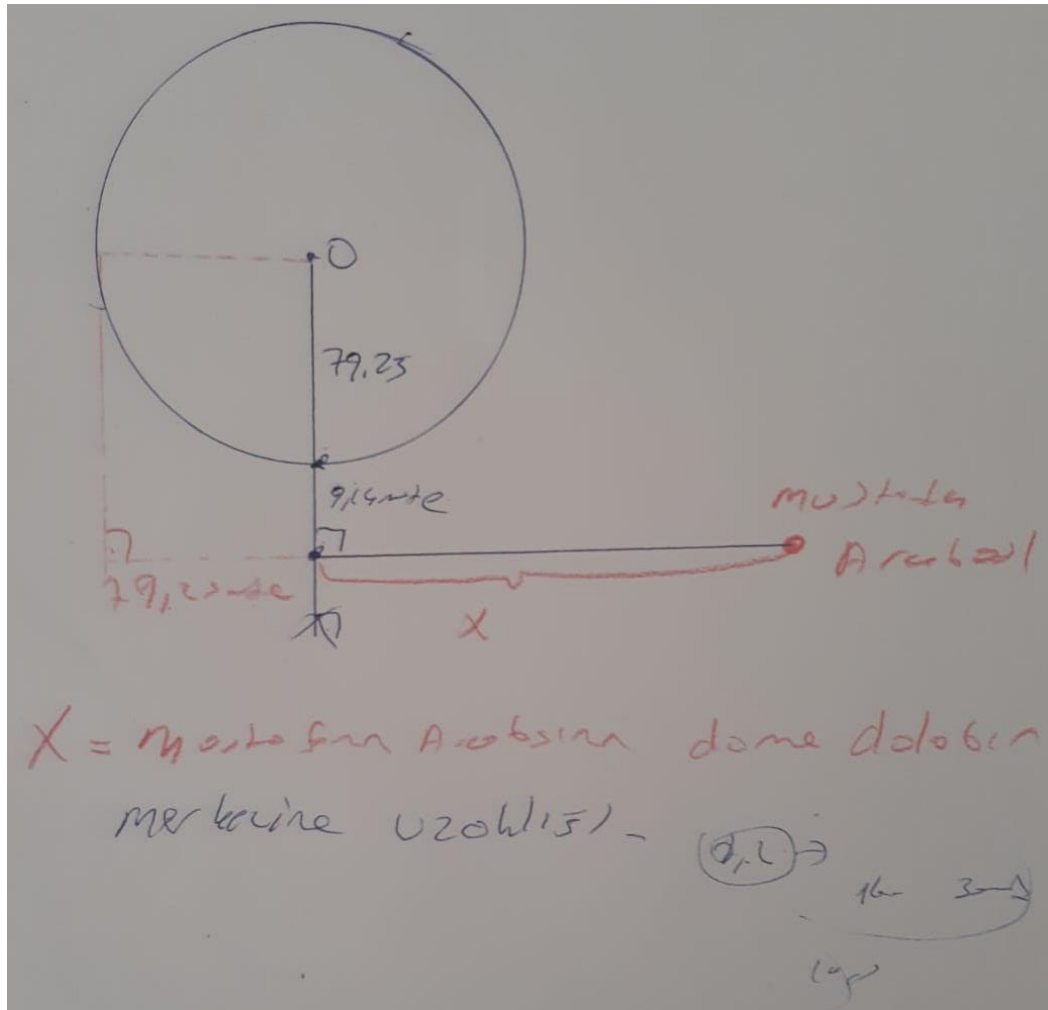 O
79.25
9,14 mte
Mustafa
Arabası
79,25 mte
X
X = Mustafanın Arabasının dönme dolabın
merkezine uzaklığı.